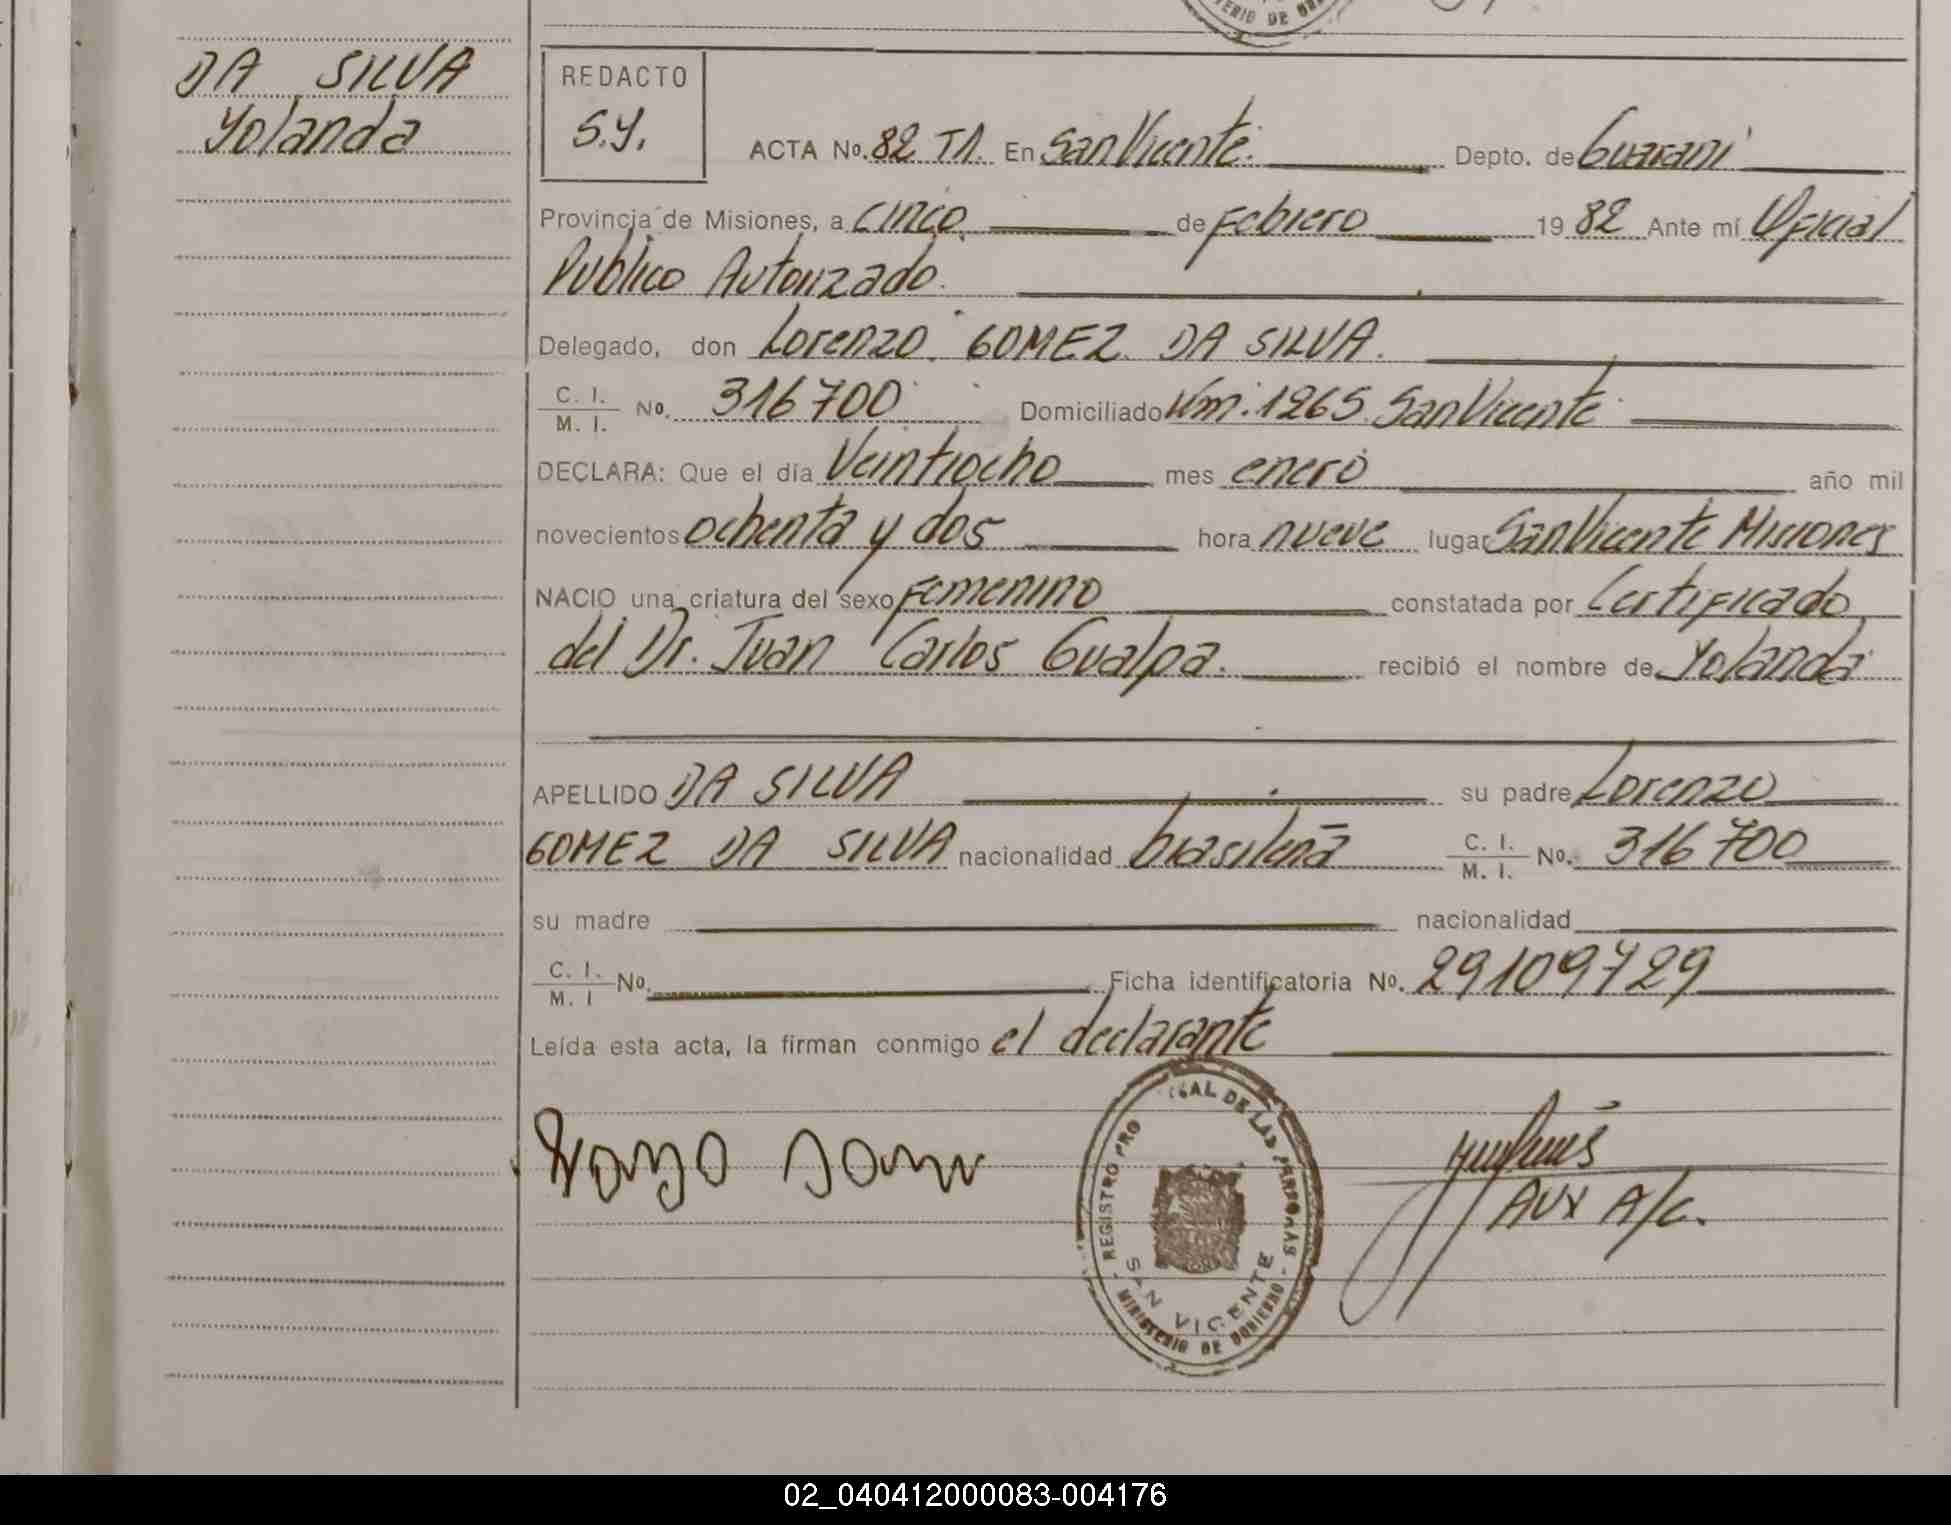 DA SILVA
Yolanda
REDACTO
S.Y.
ACTA No. 82 T1. En San Vicente. Depto. de Guarani
Provincia de Misiones, a cinco de Febrero 1982 Ante mí Oficial
Publico Autorizado.
Delegado, don Lorenzo GOMEZ DA SILVA.
C. I. / M. I. No. 316700 Domiciliado Km. 1265 San Vicente
DECLARA: Que el día Veintiocho mes enero año mil
novecientos ochenta y dos hora nueve lugar San Vicente Misiones
NACIO una criatura del sexo Femenino constatada por Certificado
del Dr. Juan Carlos Gualpa. recibió el nombre de Yolanda
APELLIDO DA SILVA su padre Lorenzo
GOMEZ DA SILVA nacionalidad brasileña C. I. / M. I. No. 316700
su madre nacionalidad
C. I. / M. I No. Ficha identificatoria No. 29109729
Leída esta acta, la firman conmigo el declarante
REGISTRO PRO CIAL DE LAS PERSONAS
SAN VICENTE
MINISTERIO DE GOBIERNO
AUX A/C.
02_040412000083-004176